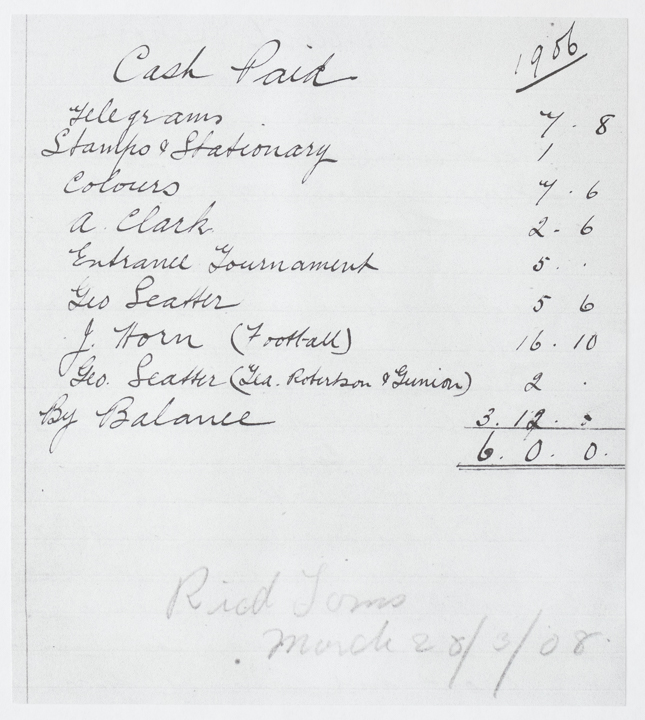 Cash Paid 1906
Telegrams 7 . 8
Stamps & Stationary 1
Colours 7 . 6
A. Clark 2 - 6
Entrance Tournament 5 . .
Geo Seatter 5 6
J. Horn (Football) 16 . 10
Geo. Seatter (Tea. Robertson & Gunion) 2 .
By Balance 3 . 12 . .
6 . 0 . 0 .
March 28/3/08